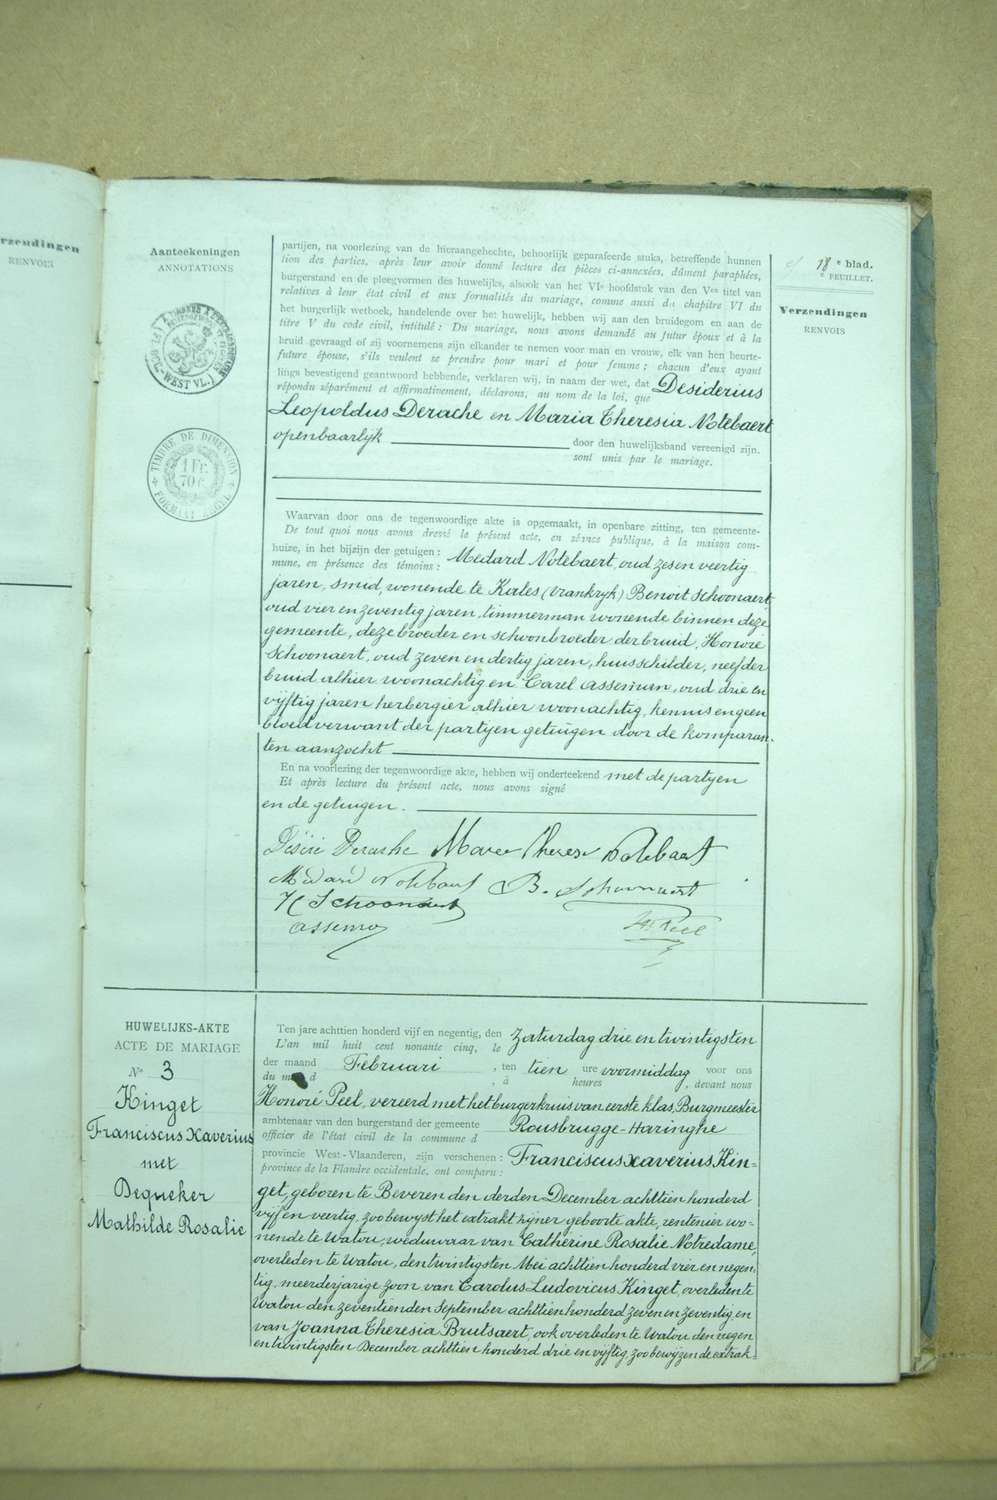 erzendingen
RENVOIS
Aanteekeningen
ANNOTATIONS
WEST VL.
TIMBRE DE DIMENSION
1 Fr.
70 c.
18 e blad.
e FEUILLET.
Verzendingen
RENVOIS
partijen, na voorlezing van de hieraangehechte, behoorlijk geparafeerde stuks, betreffende hunnen
tion des parties, après leur avoir donné lecture des pièces ci-annexées, dûment paraphées,
burgerstand en de pleegvormen des huwelijks, alsook van het VIe hoofdstuk van den Ven titel van
relatives à leur état civil et aux formalités du mariage, comme aussi du chapitre VI du
het burgerlijk wetboek, handelende over het huwelijk, hebben wij aan den bruidegom en aan de
titre V du code civil, intitulé : Du mariage, nous avons demandé au futur époux et à la
bruid gevraagd of zij voornemens zijn elkander te nemen voor man en vrouw, elk van hen beurte-
future épouse, s'ils veulent se prendre pour mari et pour femme ; chacun d'eux ayant
lings bevestigend geantwoord hebbende, verklaren wij, in naam der wet, dat Desiderius
répondu séparément et affirmativement, déclarons, au nom de la loi, que
Leopoldus Derache en Maria Theresia Notebaert
openbaarlijk door den huwelijksband vereenigd zijn.
sont unis par le mariage.
Waarvan door ons de tegenwoordige akte is opgemaakt, in openbare zitting, ten gemeente-
De tout quoi nous avons dressé le présent acte, en séance publique, à la maison com-
huize, in het bijzijn der getuigen : Medard Notebaert, oud zes en veertig
mune, en présence des témoins :
jaren, smid, wonende te Kales (Vrankryk) Benoit Schoonaert
oud vier en zeventig jaren, timmerman wonende binnen deze
gemeente, deze broeder en schoonbroeder der bruid, Honoré
Schoonaert, oud zeven en dertig jaren, huisschilder, neef der
bruid alhier woonachtig en Carel Asseman, oud drie en
vijftig jaren herbergier alhier woonachtig, kennis en geen
bloedverwant der partyen getuigen door de komparan-
ten aanzocht
En na voorlezing der tegenwoordige akte, hebben wij onderteekend met de partyen
Et après lecture du présent acte, nous avons signé
en de getuigen.
Désiré Derache Marie Therese Notebaert
Medard Notebaert B. Schoonaert
H Schoonaert
HUWELIJKS-AKTE
ACTE DE MARIAGE
No 3
Kinget
Franciscus Xaverius
met
Dequeker
Mathilde Rosalie
Ten jare achttien honderd vijf en negentig, den zaturdag drie en twintigsten
L'an mil huit cent nonante cinq, le
der maand Februari , ten tien ure voormiddag voor ons
du mois d , à heures , devant nous
Honoré Peel, vereerd met het burgerkruis van eerste klas, Burgmeester
ambtenaar van den burgerstand der gemeente Rousbrugge-Haringhe
officier de l'état civil de la commune d
provincie West-Vlaanderen, zijn verschenen : Franciscus Xaverius Kin-
province de la Flandre occidentale, ont comparu :
get, geboren te Beveren den derden December achttien honderd
vijf en veertig, zoo bewyst het extrakt zyner geboorte akte, rentenier wo-
nende te Watou, weduwaar van Catherine Rosalie Notredame,
overleden te Watou, den twintigsten Mei achttien honderd vier en negen-
tig, meerderjarige zoon van Carolus Ludovicus Kinget, overleden te
Watou den zeventienden September achttien honderd zeven en zeventig, en
van Joanna Theresia Brutsaert, ook overleden te Watou den negen
en twintigsten December achttien honderd drie en vyftig, zoo bewyzen de extrak